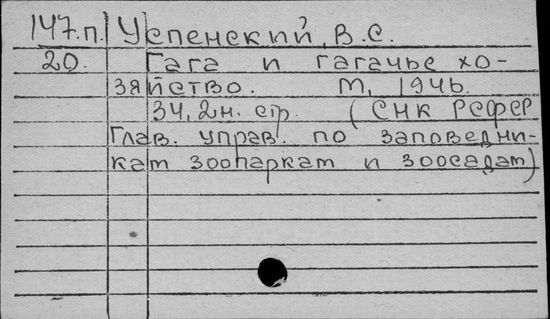 147.п. Успенский, В.С.
20. Гага и гагачье хо-
зяйство. М, 1946.
34, 2н. стр. (СНК РСФСР
Глав. управ. по заповедни-
кам зоопаркам и зоосадам)